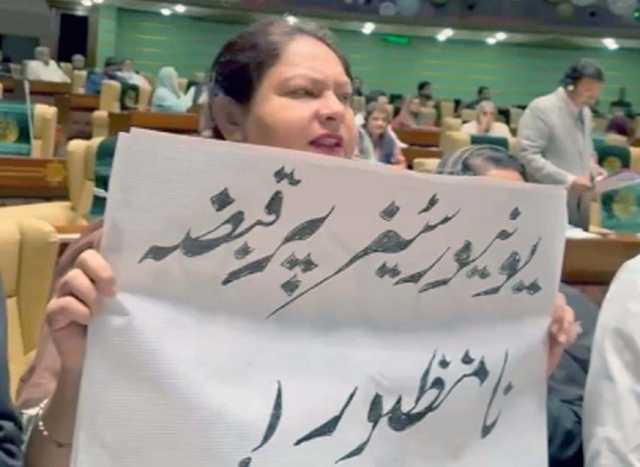 یونیورسٹیز پر قبضہ
نامنظور!